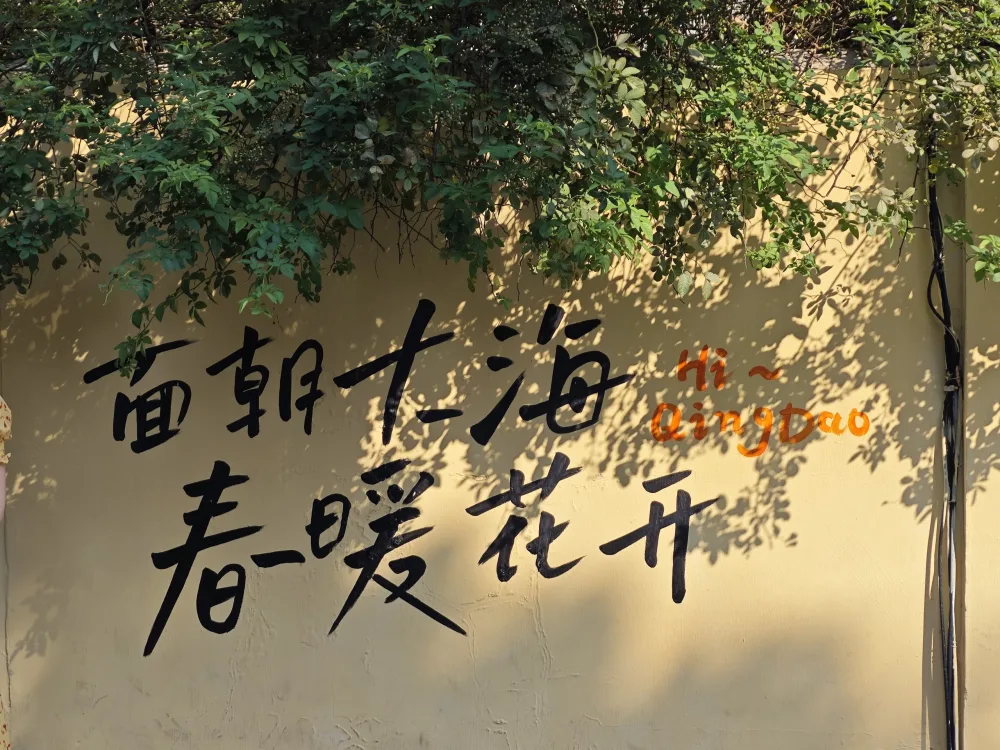 面朝大海
春暖花开
Hi ~
QingDao